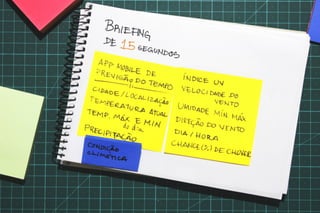 BRIEFING
DE 15 SEGUNDOS
APP MOBILE DE
PREVISÃO DO TEMPO
CIDADE/LOCALIZAÇÃO
TEMPERATURA ATUAL
TEMP. MÁX E MIN
do dia
PRECIPITAÇÃO
CONDIÇÃO
CLIMÁTICA
ÍNDICE UV
VELOCIDADE DO
VENTO
UMIDADE MIN MÁX
DIREÇÃO DO VENTO
DIA / HORA
CHANCE(%) DE CHOVER